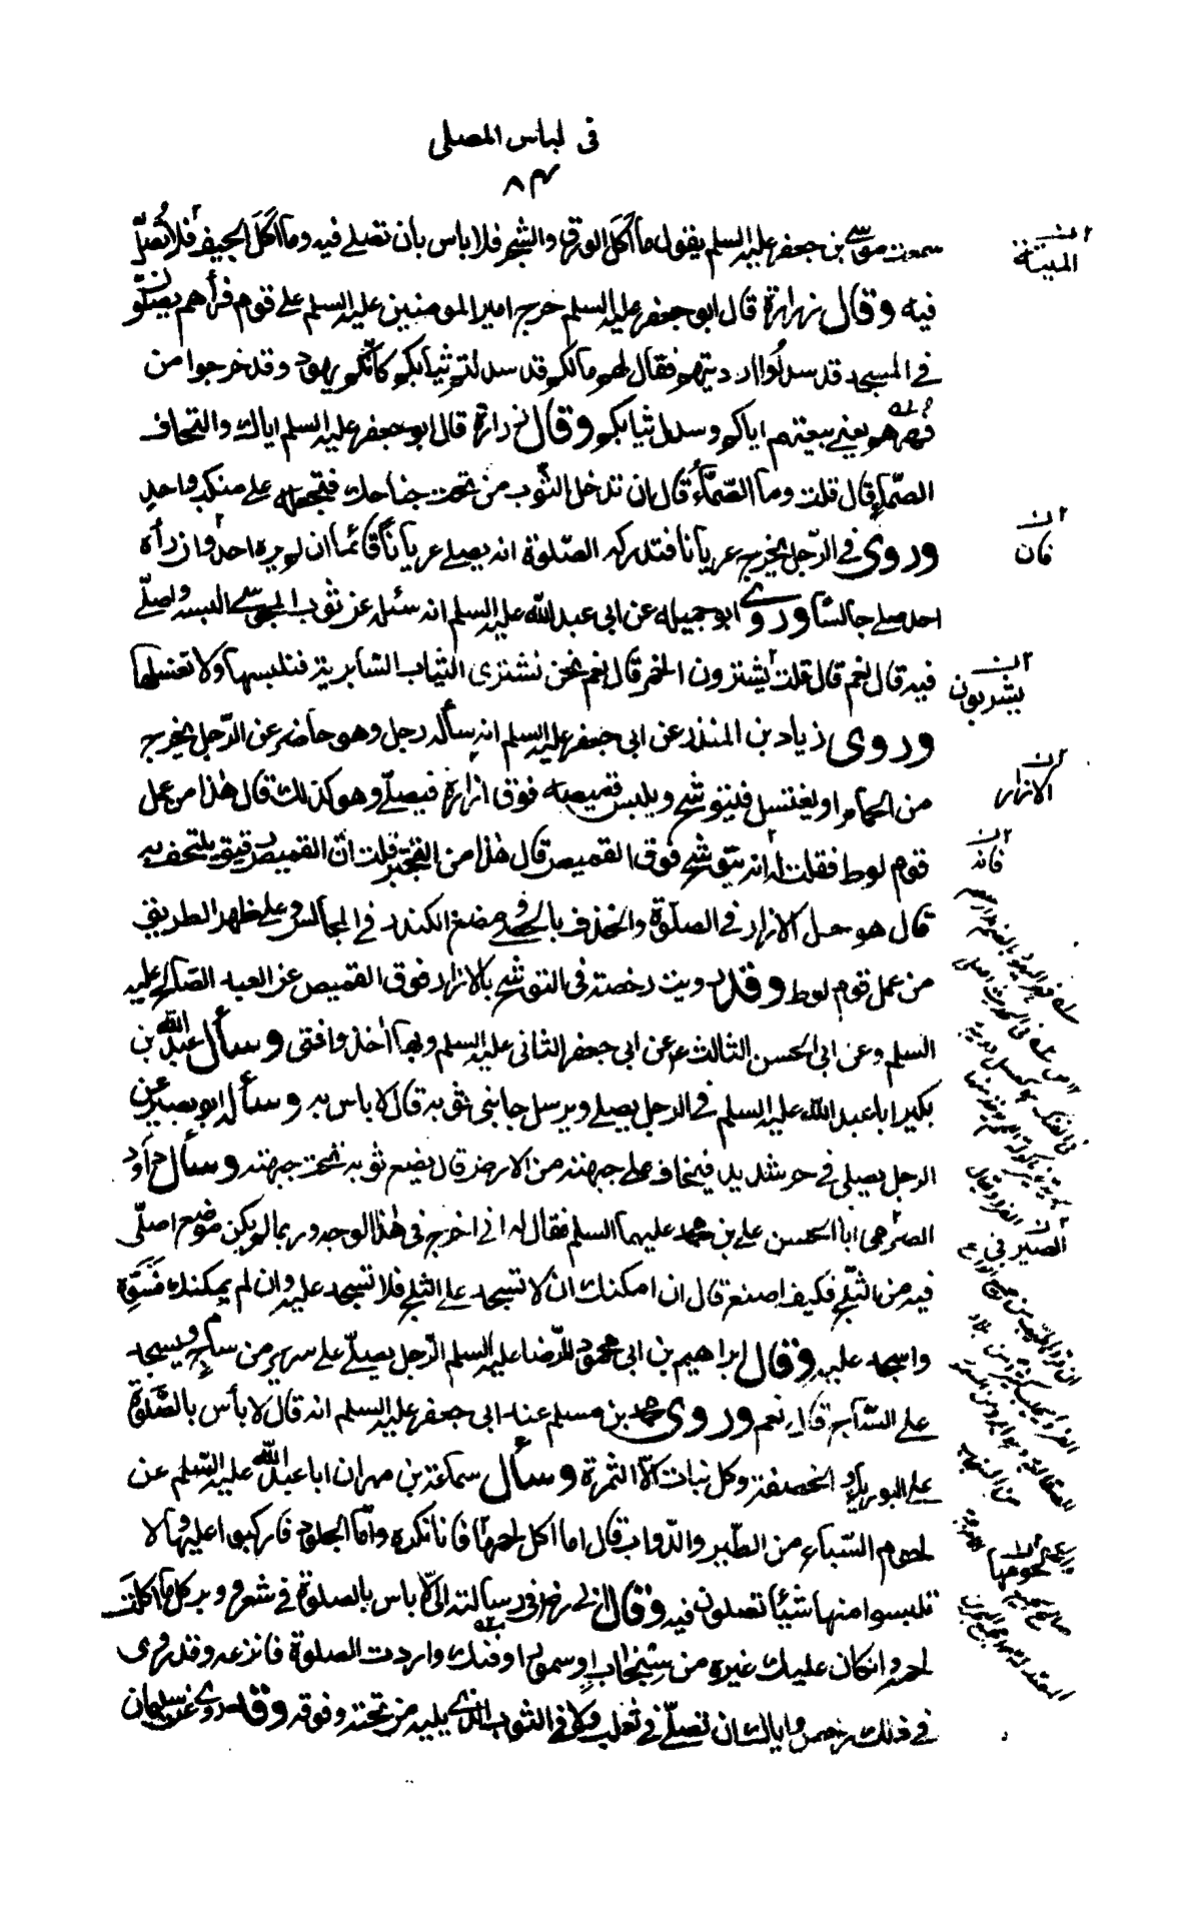 فى لباس المصلى
٨٣
سمعت موسى بن جعفر عليه السلم يقول ما أكل الورق والشجر فلا باس بان تصلے فيه وما أكل الجيف فلا تُصلّ
فيه وقال زرارة قال ابو جعفر عليه السلم خرج امير المومنين عليه السلم على قوم فرأهم يصلّون
فى المسجد قد سدلوا ارديتهم فقال لهم مالكم قد سدلتم ثيابكم كانّكم يهود وقد خرجوا من
فهرهم يعنى بيعتهم اياكم وسدل ثيابكم وقال زرارة قال ابو جعفر عليه السلم اياك والتحاف
الصّماءِ قال قلت وما الصّمّاءُ قال ان تدخل الثّوب من تحت جناحك فتجعله على منكب واحدٍ
وروى فى الرّجل يخرج عريانا فتدركه الصّلوة انه يصلے عرياناً قائما ان لم يره احد وان رأه
احد صلى جالسًا وروى ابو جميله عن ابى عبد الله عليه السلم انه سئله عن ثوب المجوسى البسه واصلّے
فيه قال نعم قال قلت يشترون الخمر قال نعم نحن نشترى الثياب السّابرية فنلبسها ولا نغسلها
وروى زياد بن المنذر عن ابى جعفر عليه السلم انه سأله رجل وهو حاضر عن الرّجل يخرج
من الحمام او يغتسل فيتوشح ويلبس قميصه فوق ازاره فيصلّے وهو كذلك قال هذا من عمل
قوم لوط فقلت له انه يتوشح فوق القميص قال هذا من التجبر قلت انّ القميص رقيق يلتحف به
قال هو وحل الازار فى الصلوة والخذف بالحصى ومضغ الكندر فى المجالس وعلى ظهر الطريق
من عمل قوم لوط وقد رويت رخصة فى التوشح بالازار فوق القميص عن العبد الصّالح عليه
السلم وعن ابى الحسن الثالث ع وعن ابى جعفر الثانى عليه السلم وبها أخذ وافتى وسأل عبد الله بن
بكير ابا عبد الله عليه السلم فى الرجل يصلے ويرسل جانبى ثوبه قال لا باس به وسأله ابو بصير عن
الرجل يصلى فى حر شديد فيخاف على جبهته من الارض قال يضع ثوبه تحت جبهته وسأل داود
الصرمى ابا الحسن على بن محمد عليهما السلم فقال له انى اخرج فى هذا الوجه وربما لم يكن موضع اصلّى
فيه من الثلج فكيف اصنع قال ان امكنك ان لا تسجد على الثلج فلا تسجد عليه وان لم يمكنك فسَوِّه
واسجد عليه وقال ابراهيم بن ابى محمود للرضا عليه السلم الرّجل يصلّے على سرير من ساج ويسجد
على السّاج قال نعم وروى محمد بن مسلم عن ابى جعفر عليه السلم انه قال لا بأس بالصّلوة
على البوريا والخصفة وكل نبات الّا الثمرة وسأل سماعة بن مهران ابا عبد الله عليه السّلم عن
لحوم السّباع من الطّير والدّواب قال اما اكل لحمها فانا نكره وامّا الجلود فاركبوا عليها ولا
تلبسوا منها شيئًا تصلون فيه وقال ابى رض فى رسالته الىّ لا باس بالصلوة فى شعر ووبر كل ما اكلت
لحمه وان كان عليك غيره من سنجاب او سمور او فنك واردت الصلوة فانزعه وقد روى
فى ذلك رخص واياك ان تصلّے فى ثعلب ولا فى الثوب الذى يليه من تحته وفوقه وقد روى عن سليمان
الميتة
فان
يشربون
الازار
فانه
لحومها